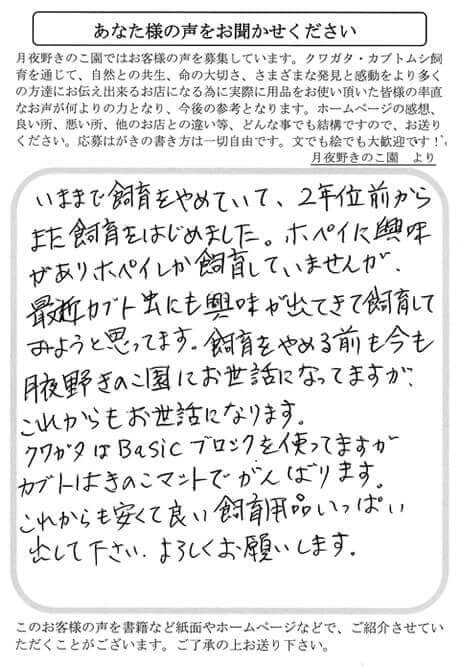 あなた様の声をお聞かせください
月夜野きのこ園ではお客様の声を募集しています。クワガタ・カブトムシ飼
育を通じて、自然との共生、命の大切さ、さまざまな発見と感動をより多く
の方達にお伝え出来るお店になる為に実際に用品をお使い頂いた皆様の率直
なお声が何よりの力となり、今後の参考となります。ホームページの感想、
良い所、悪い所、他のお店との違い等、どんな事でも結構ですので、お送り
ください。応募はがきの書き方は一切自由です。文でも絵でも大歓迎です!
月夜野きのこ園 より
いままで飼育をやめていて、2年位前から
また飼育をはじめました。ホペイに興味
がありホペイしか飼育していませんが、
最近カブト虫にも興味が出てきて飼育して
みようと思ってます。飼育をやめる前も今も
月夜野きのこ園にお世話になってますが、
これからもお世話になります。
クワガタはBasicブロックを使ってますが
カブトはきのこマットでがんばります。
これからも安くて良い飼育用品いっぱい
出して下さい。よろしくお願いします。
このお客様の声を書籍など紙面やホームページなどで、ご紹介させてい
ただくことがございます。ご了承の上お送り下さい。